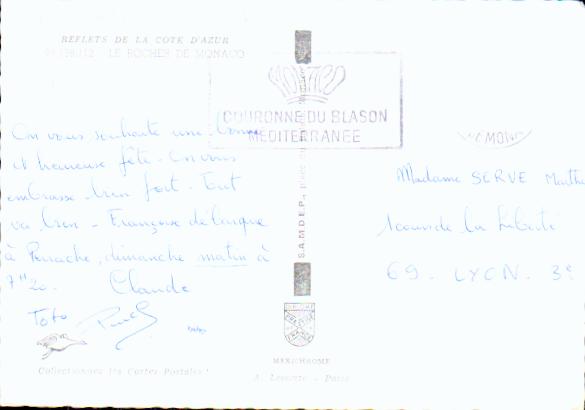 REFLETS DE LA COTE D'AZUR
LE ROCHER DE MONACO
MONACO
COURONNE DU BLASON
MEDITERRANEE
On vous souhaite une bonne
et heureuse fête. On vous
embrasse bien fort. Tout
va bien - Françoise débarque
à Perrache, dimanche matin à
7H20. Claude
Toto
Madame SERVE Marthe
1 cours de la Liberté
69 - LYON - 3e
S.A.M.D.E.P.
MEXICHROME
Collectionnez les Cartes Postales !
A. Leconte - Paris